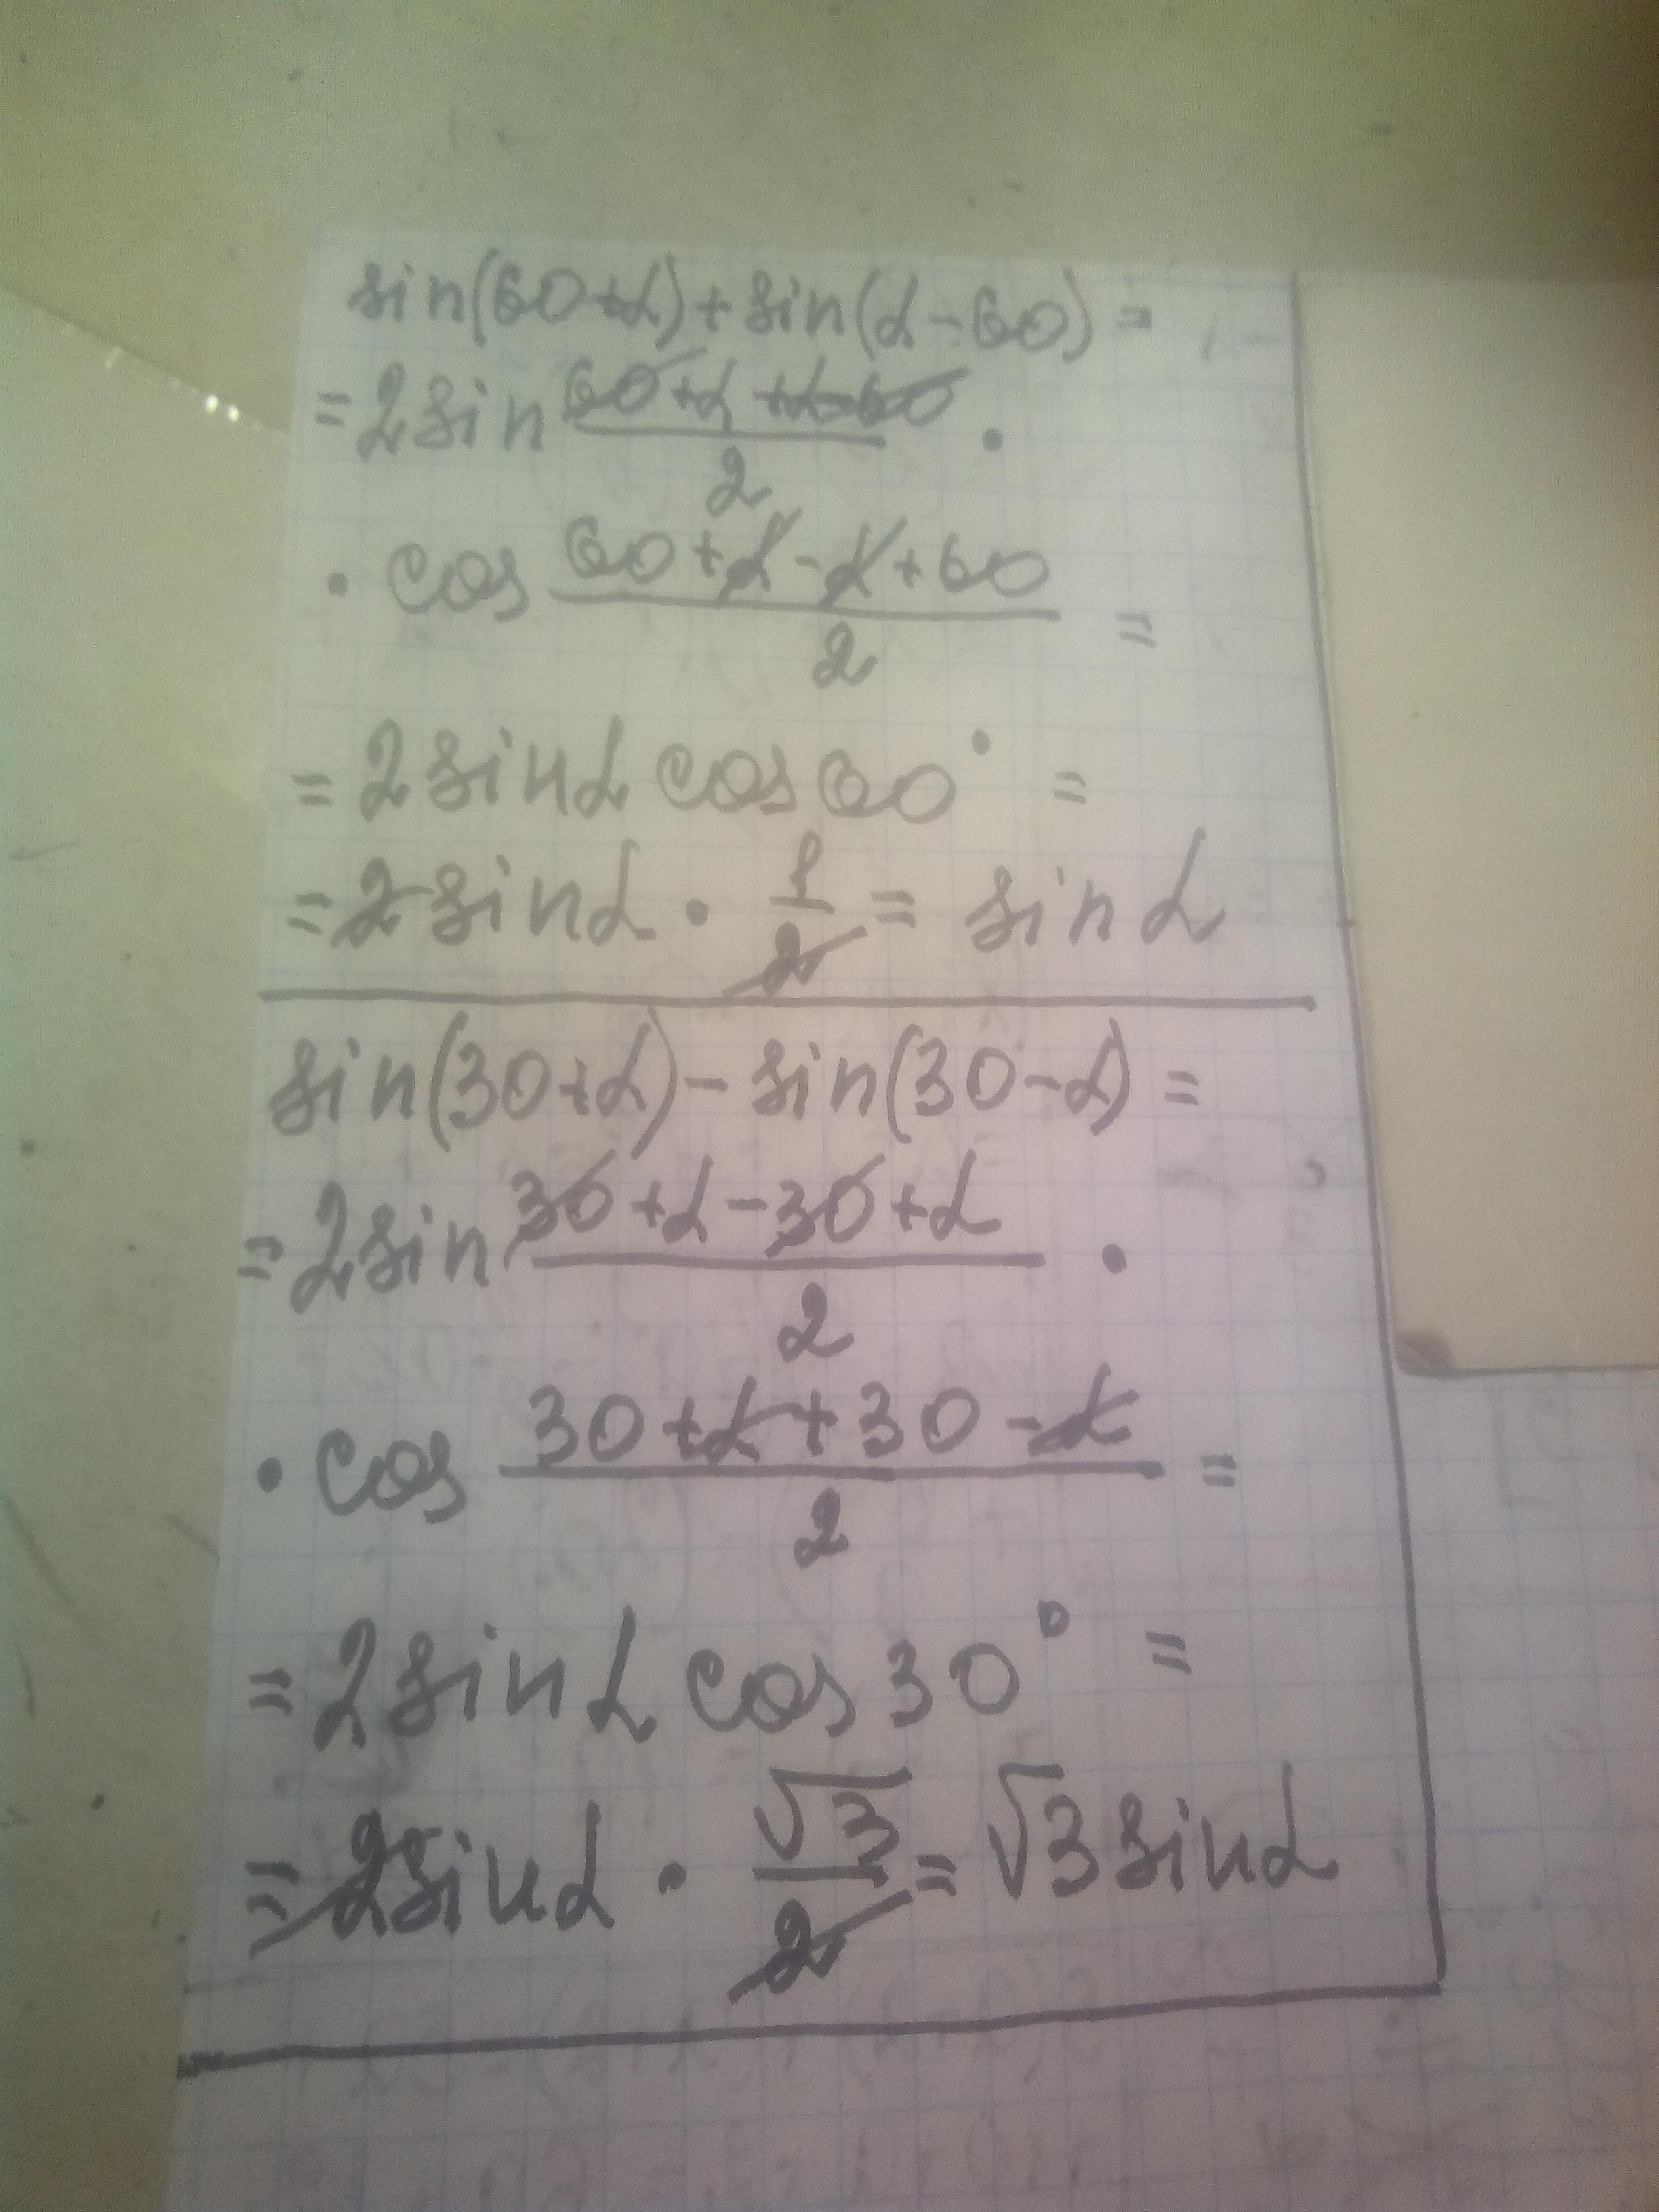 sin(60+α)+sin(α-60)=
=2sin (60+α+α-60)/2 ·
· cos (60+α-α+60)/2 =
=2sinα cos60° =
=2sinα · 1/2 = sinα
sin(30+α)-sin(30-α)=
=2sin (30+α-30+α)/2 ·
· cos (30+α+30-α)/2 =
=2sinα cos30° =
=2sinα · √3/2 = √3sinα